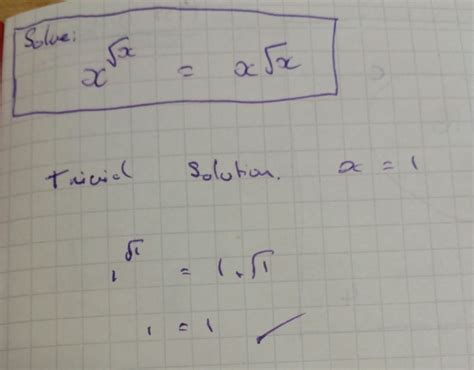 Solve:
x^√x = x√x
Trivial Solution. x = 1
1^√1 = 1.√1
1 = 1 ✓